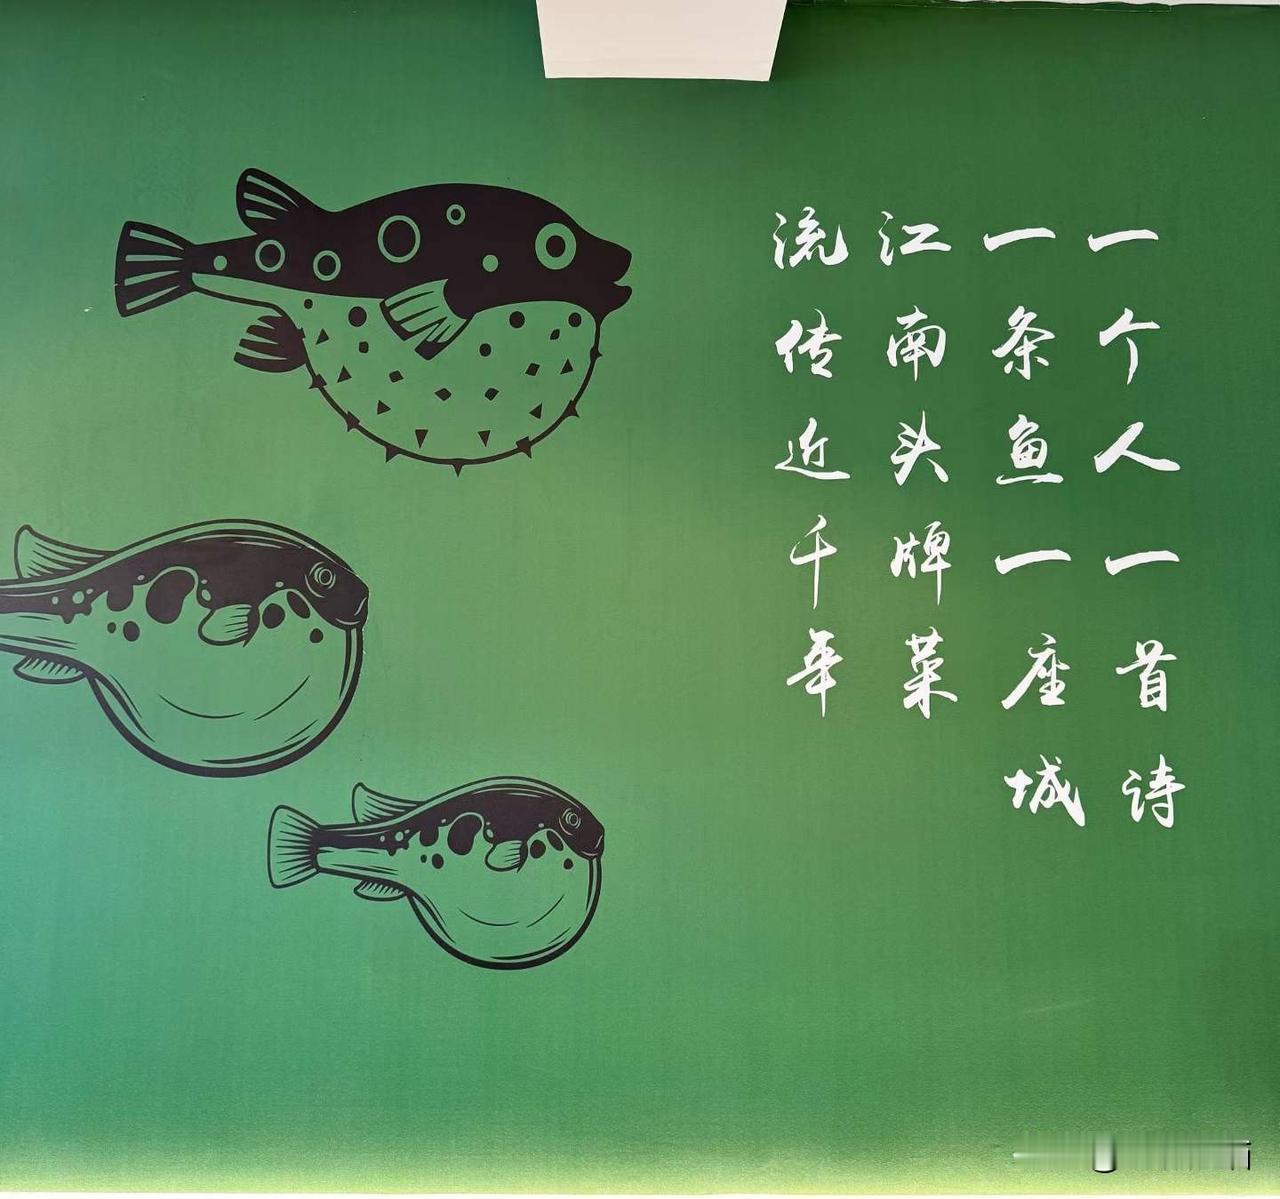 一个人一首诗
一条鱼一座城
江南头牌菜
流传近千年